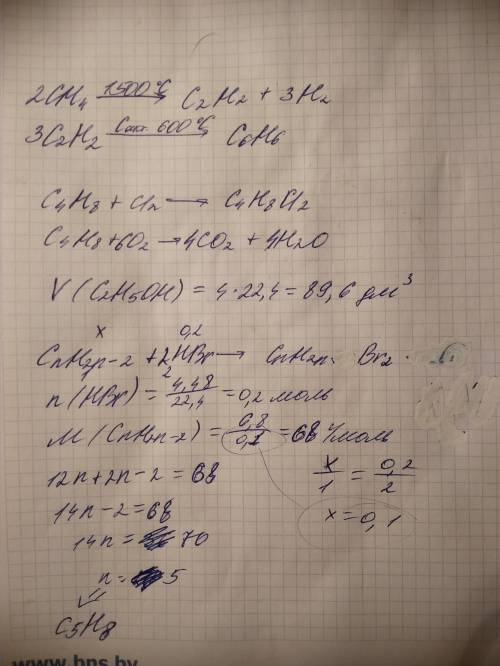 2CH₄ —1500°C→ C₂H₂ + 3H₂
3C₂H₂ —Cакт. 600°C→ C₆H₆
C₄H₈ + Cl₂ → C₄H₈Cl₂
C₄H₈ + 6O₂ → 4CO₂ + 4H₂O
V(C₂H₅OH) = 4·22,4 = 89,6 дм³
x 0,2
CnH₂n-2 + 2HBr → CnH₂n Br₂
n(HBr) = 4,48/22,4 = 0,2 моль
M(CnH₂n-2) = 6,8/0,1 = 68 г/моль
12n + 2n - 2 = 68
x/1 = 0,2/2
14n - 2 = 68
x = 0,1
14n = 70
n = 5
C₅H₈
www.bns.by